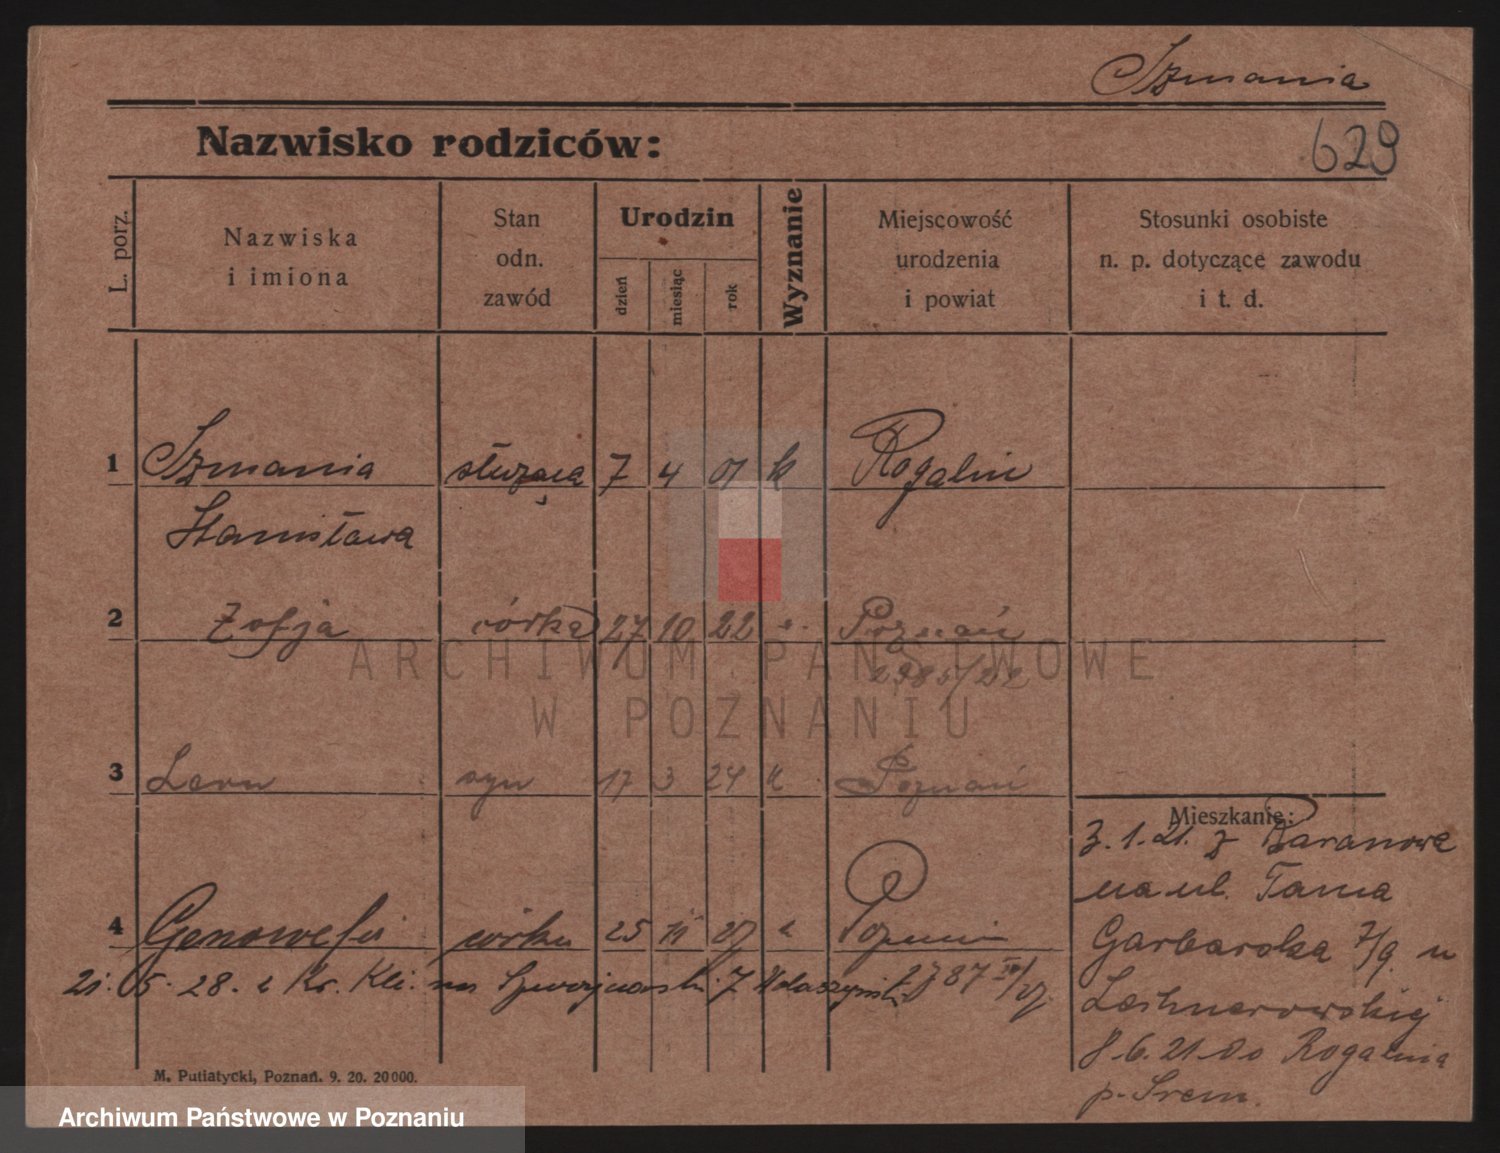 Szmania
Nazwisko rodziców:
629
L. porz.
Nazwiska
i imiona
Stan
odn.
zawód
Urodzin
dzień
miesiąc
rok
Wyznanie
Miejscowość
urodzenia
i powiat
Stosunki osobiste
n. p. dotyczące zawodu
i t. d.
1 Szmania służąca 7 4 01 k Rogalin
Stanisława
2 Zofja córka 27 10 22 Poznań
ARCHIWUM PAŃSTWOWE
W POZNANIU
3 Leon syn 17 3 24 k Poznań
Mieszkanie:
3.1.21. z Baranowa
na ul. Tama
Garbarska 7/9. u
4 Genowefa córka 25 11 27 Poznań
21.05.28. Kr. 7
8.6.21 do Rogalina
p. Śrem.
M. Putiatycki, Poznań. 9. 20. 20000.
Archiwum Państwowe w Poznaniu